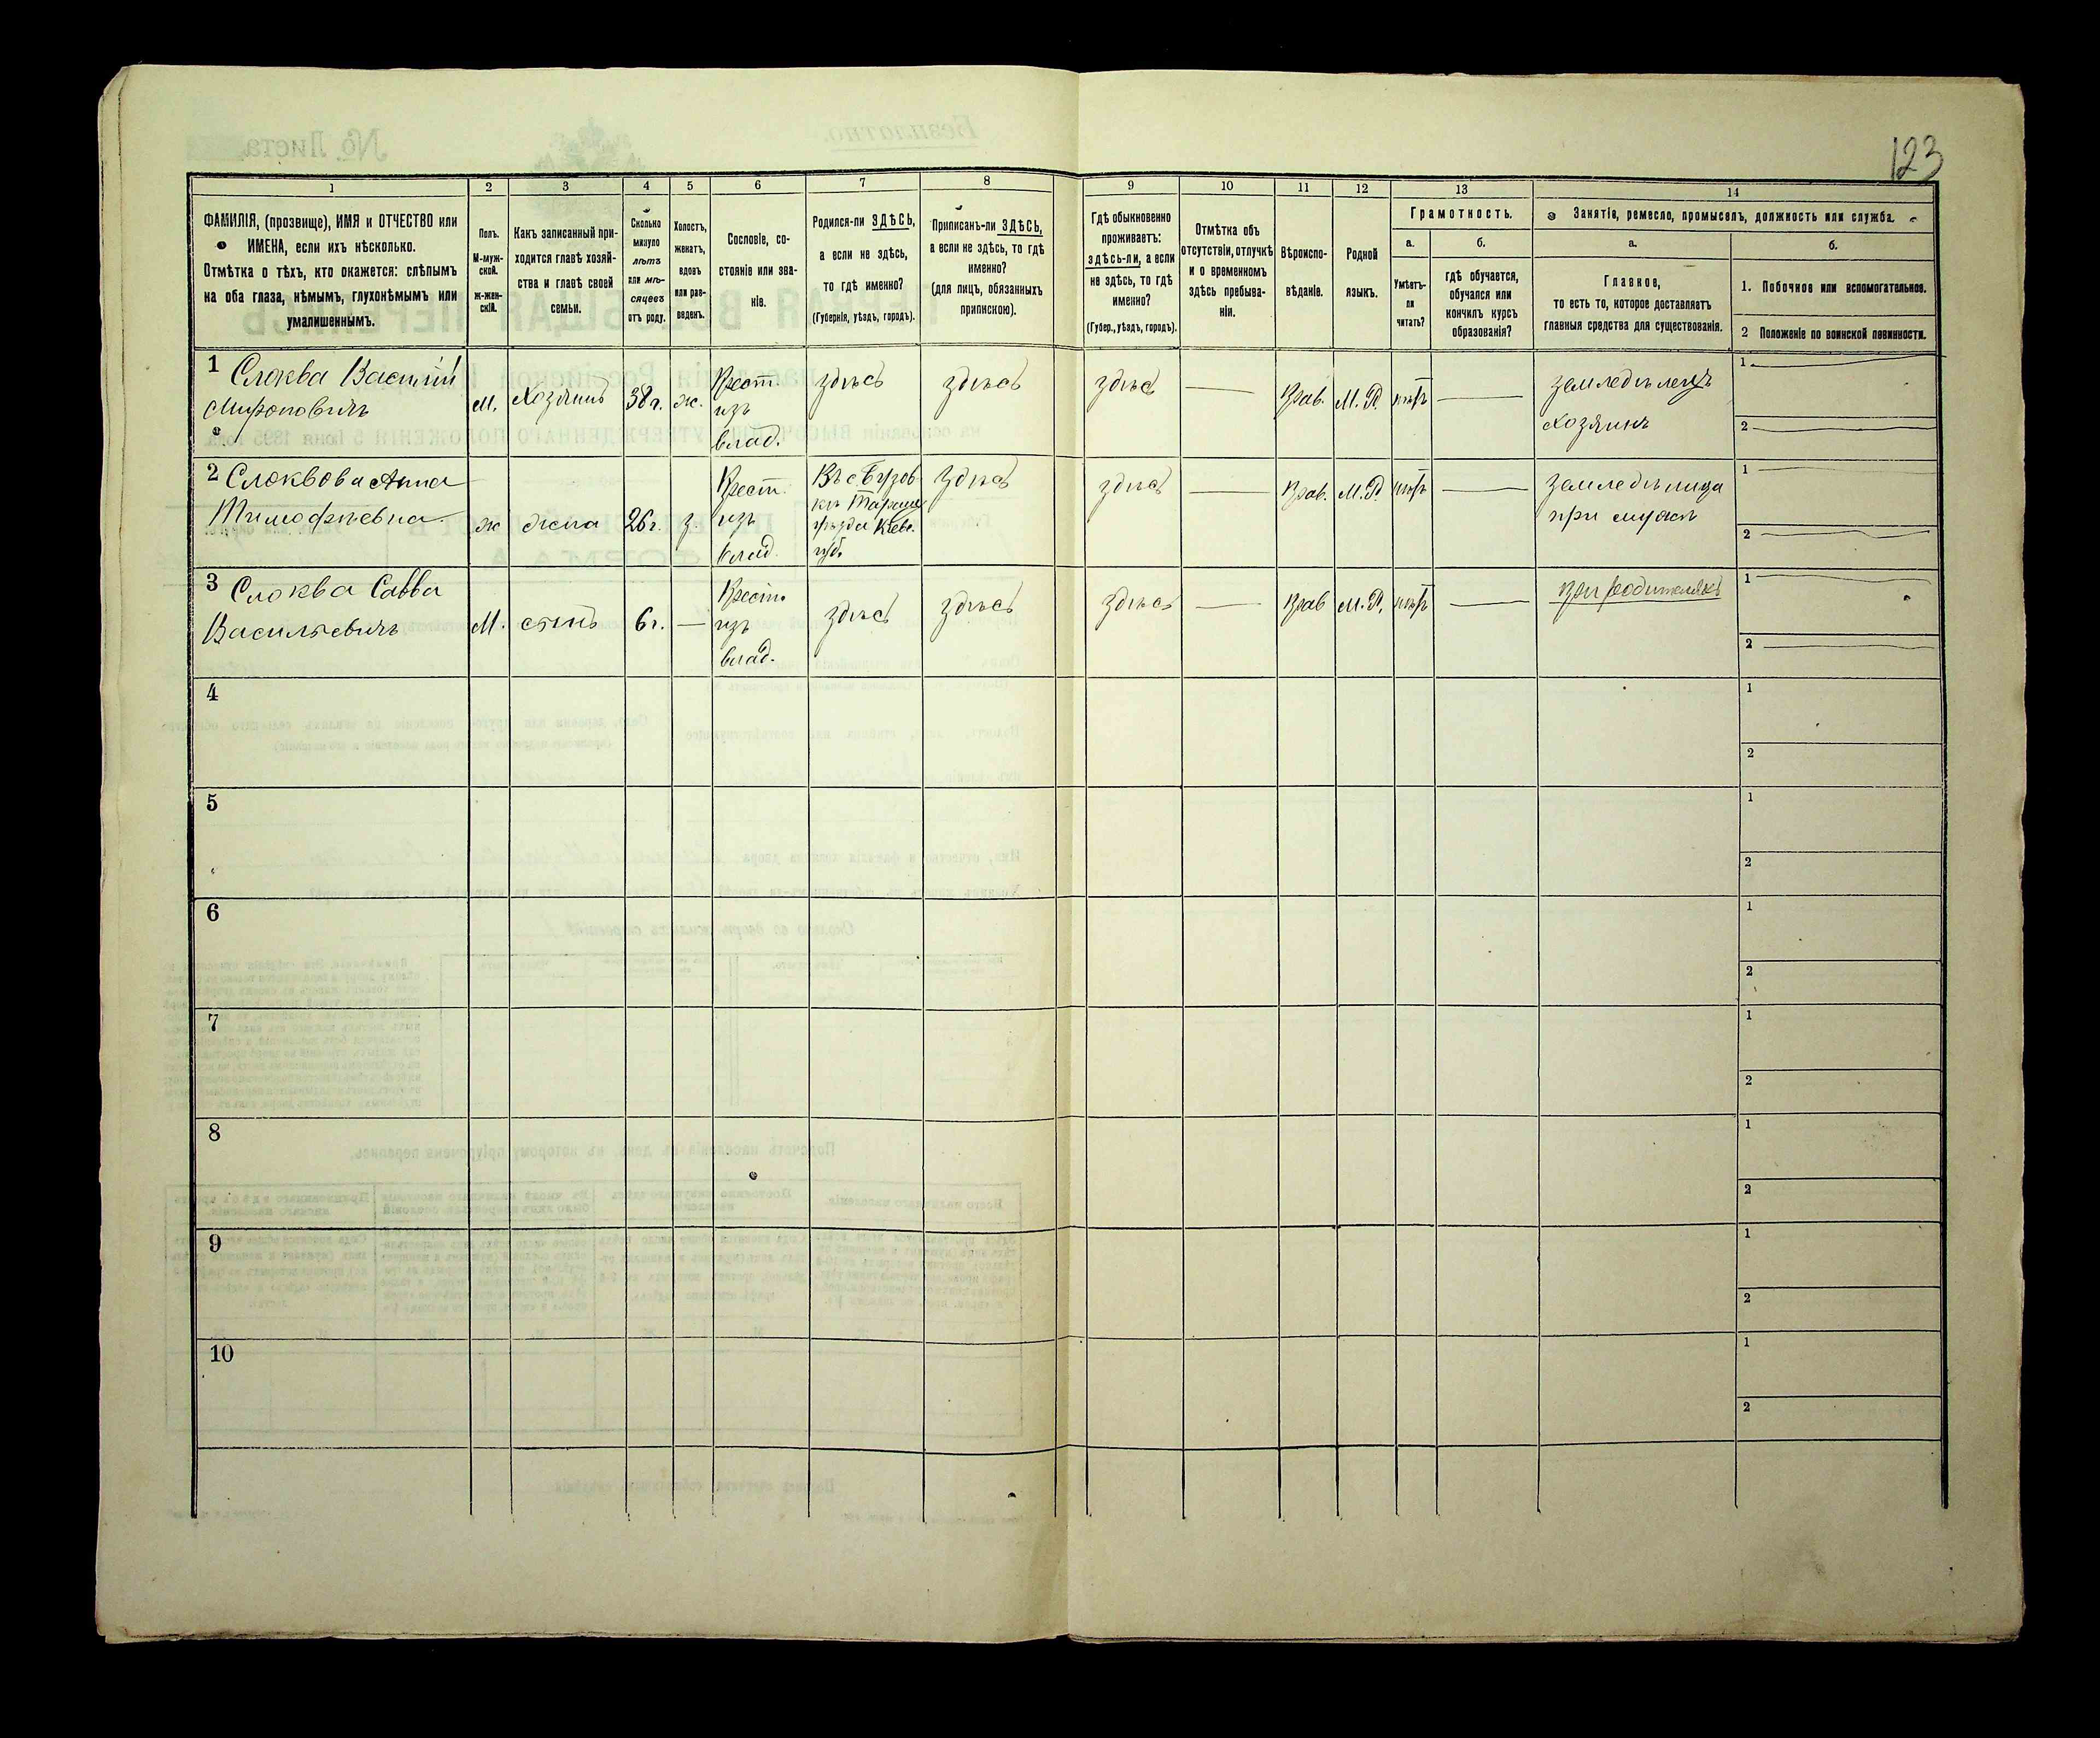 123
1 2 3 4 5 6 7 8 9 10 11 12 13 14
ФАМИЛІЯ, (прозвище), ИМЯ и ОТЧЕСТВО или
ИМЕНА, если ихъ нѣсколько.
Отмѣтка о тѣхъ, кто окажется: слѣпымъ
на оба глаза, нѣмымъ, глухонѣмымъ или
умалишеннымъ.
Полъ.
М-муж-
ской.
ж-жен-
скій.
Какъ записанный при-
ходится главѣ хозяй-
ства и главѣ своей
семьи.
Сколько
минуло
лѣтъ
или мѣ-
сяцевъ
отъ роду.
Холостъ,
женатъ,
вдовъ
или раз-
веденъ.
Сословіе, со-
стояніе или зва-
ніе.
Родился-ли ЗДѢСЬ,
а если не здѣсь,
то гдѣ именно?
(Губернія, уѣздъ, городъ).
Приписанъ-ли ЗДѢСЬ,
а если не здѣсь, то гдѣ
именно?
(для лицъ, обязанныхъ
припискою).
Гдѣ обыкновенно
проживаетъ:
здѣсь-ли, а если
не здѣсь, то гдѣ
именно?
(Губер., уѣздъ, городъ).
Отмѣтка объ
отсутствіи, отлучкѣ
и о временномъ
здѣсь пребыва-
ніи.
Вѣроиспо-
вѣданіе.
Родной
языкъ.
Грамотность.
а.
Умѣетъ-
ли
читать?
б.
гдѣ обучается,
обучался или
кончилъ курсъ
образованія?
Занятіе, ремесло, промыселъ, должность или служба.
а.
Главное,
то есть то, которое доставляетъ
главныя средства для существованія.
б.
1. Побочное или вспомогательное.
2 Положеніе по воинской повинности.
1 Слоква Василій
Мироновичъ
М.
Хозяинъ
38 г.
ж.
Крест.
изъ
влад.
здѣсь
здѣсь
здѣсь
Прав.
М. Р.
нѣтъ
земледѣлецъ
хозяинъ
1
2
2 Слоквова Анна
Тимофѣевна
ж
жена
26 г.
з.
Крест.
изъ
влад.
Въ с. Бузов
кѣ Таращ
уѣзда Кіев.
губ.
здѣсь
здѣсь
Прав.
М. Р.
нѣтъ
земледѣлица
при мужѣ
1
2
3 Слоква Савва
Васильевичъ
М.
сынъ
6 г.
Крест.
изъ
влад.
здѣсь
здѣсь
здѣсь
Прав
М. Р.
нѣтъ
при родителяхъ
1
2
4
1
2
5
1
2
6
1
2
7
1
2
8
1
2
9
1
2
10
1
2